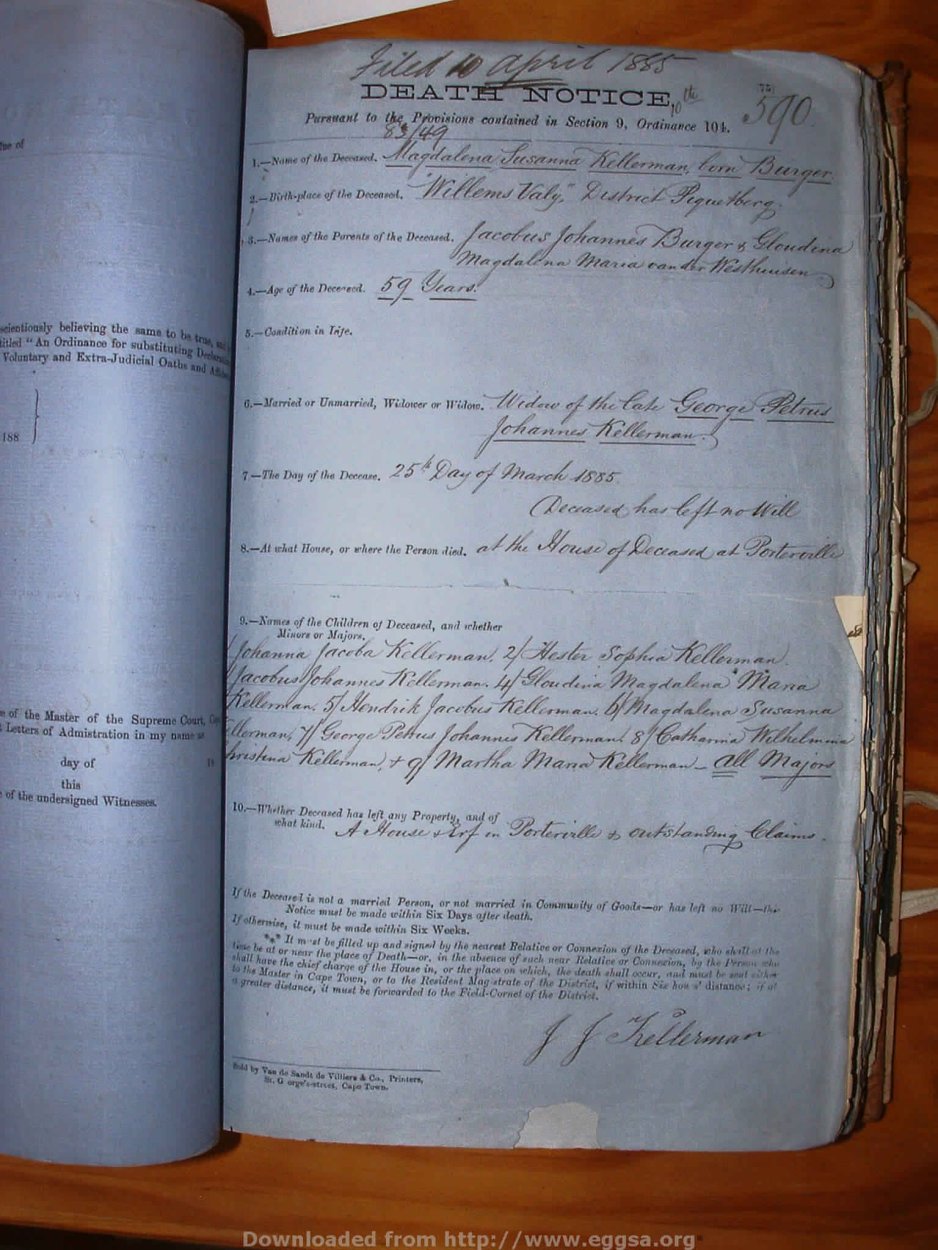 Filed 10 April 1885
DEATH NOTICE,
10th
590
Pursuant to the Provisions contained in Section 9, Ordinance 104.
83/49
1.—Name of the Deceased. Magdalena Susanna Kellerman, born Burger
2.—Birth-place of the Deceased. "Willems Valy," District Piquetberg.
3.—Names of the Parents of the Deceased. Jacobus Johannes Burger & Gloudina
Magdalena Maria van der Westhuisen
4.—Age of the Deceased. 59 Years.
5.—Condition in Life.
6.—Married or Unmarried, Widower or Widow. Widow of the late George Petrus
Johannes Kellerman.
7—The Day of the Decease. 25th Day of March 1885.
Deceased has left no Will
8.—At what House, or where the Person died. at the House of Deceased at Porterville
9.—Names of the Children of Deceased, and whether
Minors or Majors.
1/ Johanna Jacoba Kellerman, 2/ Hester Sophia Kellerman.
Jacobus Johannes Kellerman. 4/ Gloudina Magdalena Maria
Kellerman. 5/ Hendrik Jacobus Kellerman. 6/ Magdalena Susanna
llerman, 7/ George Petrus Johannes Kellerman. 8/ Catharina Wilhelmina
hristina Kellerman, & 9/ Martha Maria Kellerman — all Majors
10.—Whether Deceased has left any Property, and of
what kind. A House & Erf in Porterville & outstanding Claims.
If the Deceased is not a married Person, or not married in Community of Goods—or has left no Will—the
Notice must be made within Six Days after death.
If otherwise, it must be made within Six Weeks.
*** It must be filled up and signed by the nearest Relative or Connexion of the Deceased, who shall at the
time be at or near the place of Death—or, in the absence of such near Relative or Connexion, by the Person who
shall have the chief charge of the House in, or the place on which, the death shall occur, and must be sent either
to the Master in Cape Town, or to the Resident Magistrate of the District, if within Six hours' distance; if at
a greater distance, it must be forwarded to the Field-Cornet of the District.
J J Kellerman
Sold by Van de Sandt de Villiers & Co., Printers,
St. G orge's-street, Cape Town.
ue of
scientiously believing the same to be true, and
titled "An Ordinance for substituting Declara
Voluntary and Extra-Judicial Oaths and Affida
188
e of the Master of the Supreme Court,
Letters of Admistration in my name as
day of 18
this
e of the undersigned Witnesses.
Downloaded from http://www.eggsa.org